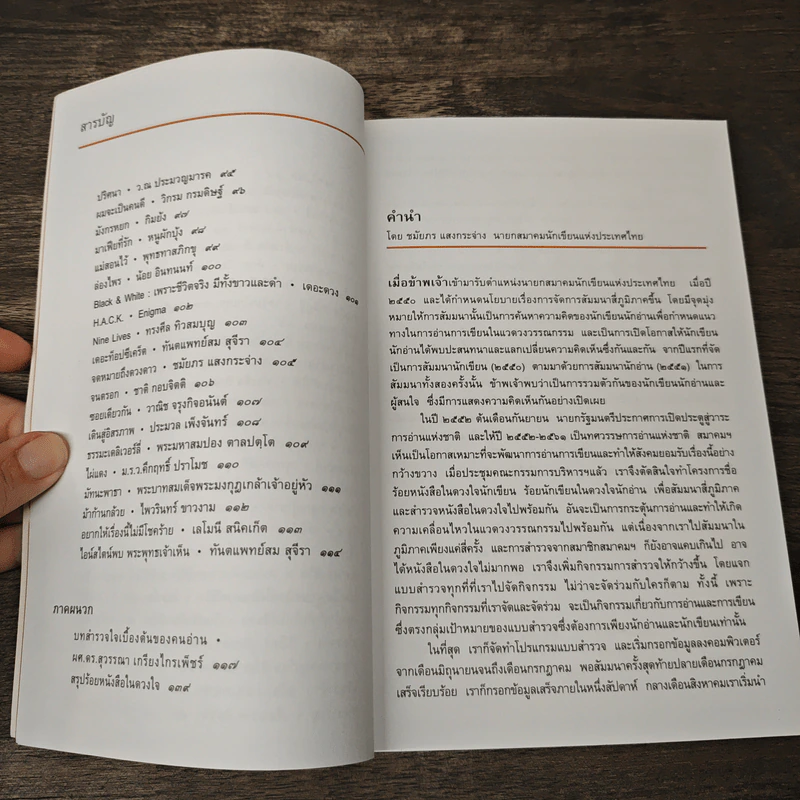 สารบัญ
ปริศนา • ว.ณ ประมวญมารค ๙๕
ผมจะเป็นคนดี • วิกรม กรมดิษฐ์ ๙๖
มังกรหยก • กิมย้ง ๙๗
มาเฟียที่รัก • หนูผักบุ้ง ๙๘
แม่สอนไว้ • พุทธทาสภิกขุ ๙๙
ล่องไพร • น้อย อินทนนท์ ๑๐๐
Black & White : เพราะชีวิตจริง มีทั้งขาวและดำ • เดอะดวง ๑๐๑
H.A.C.K. • Enigma ๑๐๒
Nine Lives • ทรงศีล ทิวสมบุญ ๑๐๓
เดอะท็อปซีเคร็ต • ทันตแพทย์สม สุจีรา ๑๐๔
จดหมายถึงดวงดาว • ชมัยภร แสงกระจ่าง ๑๐๕
จนตรอก • ชาติ กอบจิตติ ๑๐๖
ซอยเดียวกัน • วาณิช จรุงกิจอนันต์ ๑๐๗
เดินสู่อิสรภาพ • ประมวล เพ็งจันทร์ ๑๐๘
ธรรมะเดลิเวอร์ลี่ • พระมหาสมปอง ตาลปุตฺโต ๑๐๙
ไผ่แดง • ม.ร.ว.คึกฤทธิ์ ปราโมช ๑๑๐
มัทนะพาธา • พระบาทสมเด็จพระมงกุฎเกล้าเจ้าอยู่หัว ๑๑๑
ม้าก้านกล้วย • ไพวรินทร์ ขาวงาม ๑๑๒
อยากให้เรื่องนี้ไม่มีโชคร้าย • เลโมนี สนิคเก็ต ๑๑๓
ไอน์สไตน์พบ พระพุทธเจ้าเห็น • ทันตแพทย์สม สุจีรา ๑๑๔
ภาคผนวก
บทสำรวจใจเบื้องต้นของคนอ่าน •
ผศ.ดร.สุวรรณา เกรียงไกรเพ็ชร์ ๑๑๗
สรุปร้อยหนังสือในดวงใจ ๑๓๙
คำนำ
โดย ชมัยภร แสงกระจ่าง นายกสมาคมนักเขียนแห่งประเทศไทย
เมื่อข้าพเจ้าเข้ามารับตำแหน่งนายกสมาคมนักเขียนแห่งประเทศไทย เมื่อปี
๒๕๕๐ และได้กำหนดนโยบายเรื่องการจัดการสัมมนาสี่ภูมิภาคขึ้น โดยมีจุดมุ่ง
หมายให้การสัมมนานั้นเป็นการค้นหาความคิดของนักเขียนนักอ่านเพื่อกำหนดแนว
ทางในการอ่านการเขียนในแวดวงวรรณกรรม และเป็นการเปิดโอกาสให้นักเขียน
นักอ่านได้พบปะสนทนาและแลกเปลี่ยนความคิดเห็นซึ่งกันและกัน จากปีแรกที่จัด
เป็นการสัมมนานักเขียน (๒๕๕๐) ตามมาด้วยการสัมมนานักอ่าน (๒๕๕๑) ในการ
สัมมนาทั้งสองครั้งนั้น ข้าพเจ้าพบว่าเป็นการรวมตัวกันของนักเขียนนักอ่านและ
ผู้สนใจ ซึ่งมีการแสดงความคิดเห็นกันอย่างเปิดเผย
ในปี ๒๕๕๒ ต้นเดือนกันยายน นายกรัฐมนตรีประกาศการเปิดประตูสู่วาระ
การอ่านแห่งชาติ และให้ปี ๒๕๕๒-๒๕๖๑ เป็นทศวรรษการอ่านแห่งชาติ สมาคมฯ
เห็นเป็นโอกาสเหมาะที่จะพัฒนาการอ่านการเขียนและทำให้สังคมยอมรับเรื่องนี้อย่าง
กว้างขวาง เมื่อประชุมคณะกรรมการบริหารฯแล้ว เราจึงตัดสินใจทำโครงการชื่อ
ร้อยหนังสือในดวงใจนักเขียน ร้อยนักเขียนในดวงใจนักอ่าน เพื่อสัมมนาสี่ภูมิภาค
และสำรวจหนังสือในดวงใจไปพร้อมกัน อันจะเป็นการกระตุ้นการอ่านและทำให้เกิด
ความเคลื่อนไหวในแวดวงวรรณกรรมไปพร้อมกัน แต่เนื่องจากเราไปสัมมนาใน
ภูมิภาคเพียงแค่สี่ครั้ง และการสำรวจจากสมาชิกสมาคมฯ ก็ยังอาจแคบเกินไป อาจ
ได้หนังสือในดวงใจไม่มากพอ เราจึงเพิ่มกิจกรรมการสำรวจให้กว้างขึ้น โดยแจก
แบบสำรวจทุกที่ที่เราไปจัดกิจกรรม ไม่ว่าจะจัดร่วมกับใครก็ตาม ทั้งนี้ เพราะ
กิจกรรมทุกกิจกรรมที่เราจัดและจัดร่วม จะเป็นกิจกรรมเกี่ยวกับการอ่านและการเขียน
ซึ่งตรงกลุ่มเป้าหมายของแบบสำรวจซึ่งต้องการเพียงนักอ่านและนักเขียนเท่านั้น
ในที่สุด เราก็จัดทำโปรแกรมแบบสำรวจ และเริ่มกรอกข้อมูลลงคอมพิวเตอร์
จากเดือนมิถุนายนจนถึงเดือนกรกฎาคม พอสัมมนาครั้งสุดท้ายปลายเดือนกรกฎาคม
เสร็จเรียบร้อย เราก็กรอกข้อมูลเสร็จภายในหนึ่งสัปดาห์ กลางเดือนสิงหาคมเราเริ่มนำ